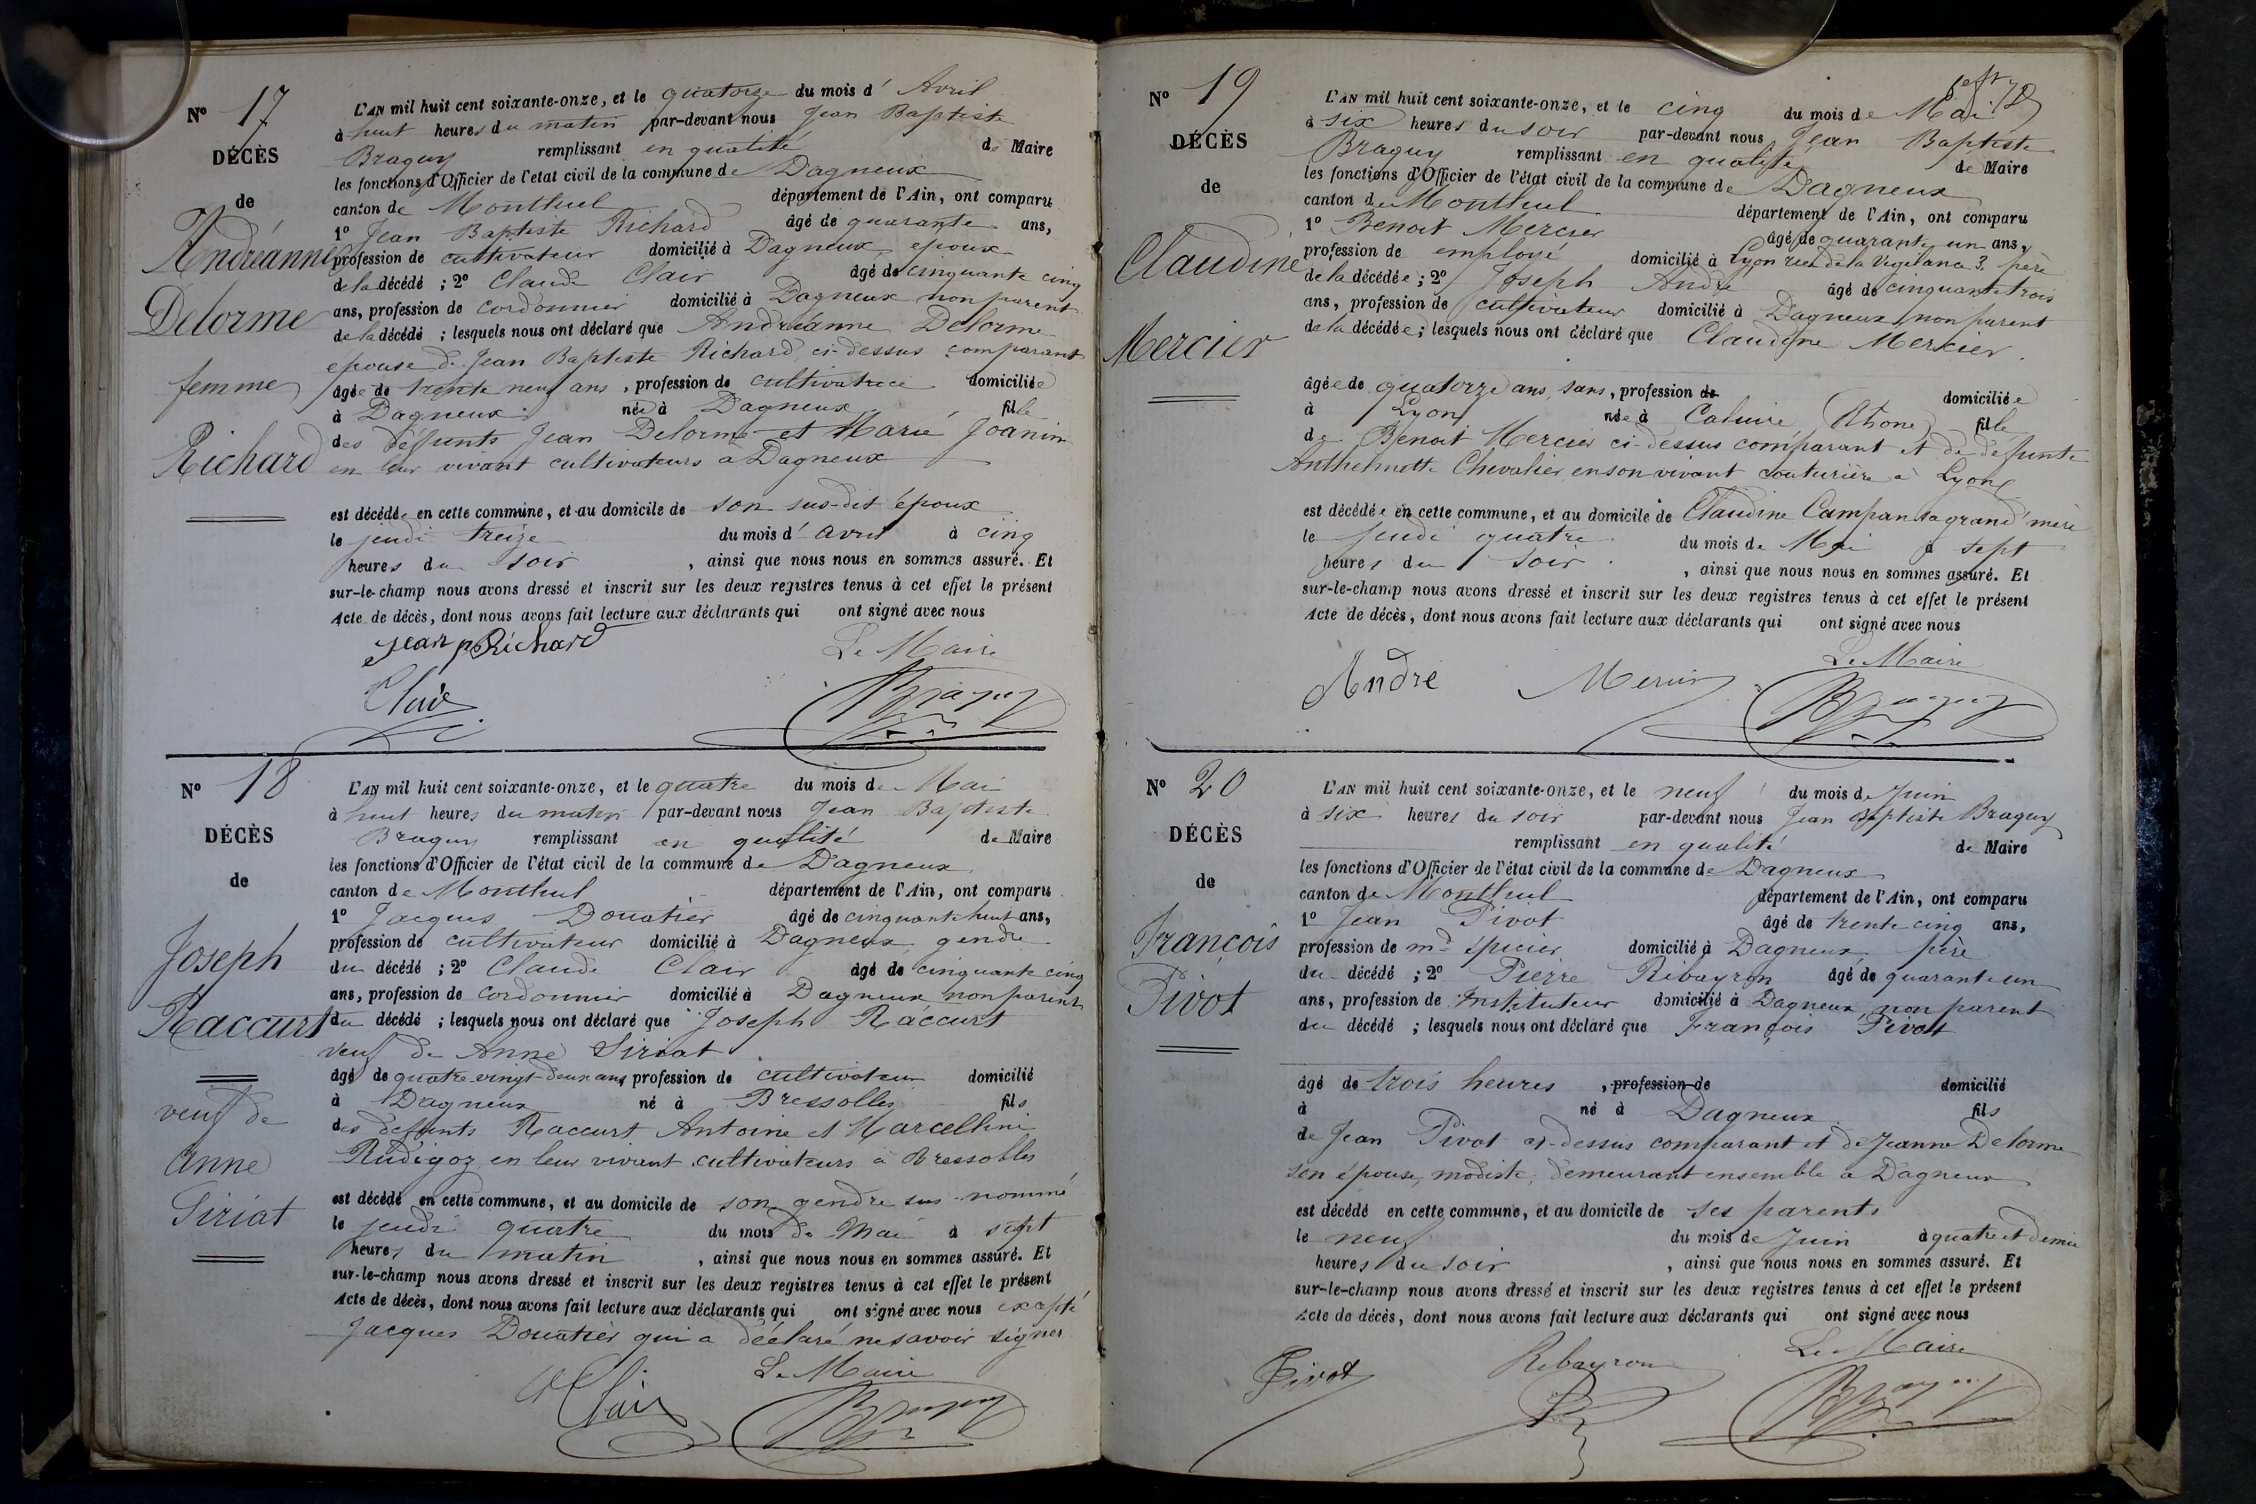 Nº 17
DÉCÈS
de
Andréanne
Delorme
femme
Richard
L'AN mil huit cent soixante-onze, et le quatorze du mois d' Avril
à huit heures du matin par-devant nous Jean Baptiste
Braguy remplissant en qualité de Maire
les fonctions d'Officier de l'etat civil de la commune de Dagneux
canton de Montluel département de l'Ain, ont comparu
1º Jean Baptiste Richard âgé de quarante ans,
profession de cultivateur domicilié à Dagneux, époux
de la décédé ; 2º Claude Clair âgé de cinquante cinq
ans, profession de cordonnier domicilié à Dagneux non parent
de la décédé ; lesquels nous ont déclaré que Andréanne Delorme
épouse de Jean Baptiste Richard ci-dessus comparant
âgée de trente neuf ans, profession de cultivatrice domiciliée
à Dagneux née à Dagneux fille
des défunts Jean Delorme et Marie Joanin
en leur vivant cultivateurs à Dagneux
est décédée en cette commune, et au domicile de son sus-dit époux
le jeudi treize du mois d'avril à cinq
heures du soir, ainsi que nous nous en sommes assuré. Et
sur-le-champ nous avons dressé et inscrit sur les deux registres tenus à cet effet le présent
Acte de décès, dont nous avons fait lecture aux déclarants qui ont signé avec nous
Jean Richard Le Maire
Clair Braguy
Nº 18
DÉCÈS
de
Joseph
Raccurt
veuf de
Anne
Siriat
L'AN mil huit cent soixante-onze, et le quatre du mois de Mai
à huit heures du matin par-devant nous Jean Baptiste
Braguy remplissant en qualité de Maire
les fonctions d'Officier de l'état civil de la commune de Dagneux
canton de Montluel département de l'Ain, ont comparu
1º Jacques Douatier âgé de cinquante huit ans,
profession de cultivateur domicilié à Dagneux gendre
du décédé ; 2º Claude Clair âgé de cinquante cinq
ans, profession de cordonnier domicilié à Dagneux non parent
du décédé ; lesquels nous ont déclaré que Joseph Raccurt
veuf de Anne Siriat
âgé de quatre-vingt-deux ans profession de cultivateur domicilié
à Dagneux né à Bressolles fils
des défunts Raccurt Antoine et Marcelline
Rudigoz en leur vivant cultivateurs à Bressolles
est décédé en cette commune, et au domicile de son gendre sus-nommé
le jeudi quatre du mois de Mai à sept
heures du matin, ainsi que nous nous en sommes assuré. Et
sur-le-champ nous avons dressé et inscrit sur les deux registres tenus à cet effet le présent
Acte de décès, dont nous avons fait lecture aux déclarants qui ont signé avec nous excepté
Jacques Douatier qui a déclaré ne savoir signer
Clair Le Maire
Braguy
Nº 19
DÉCÈS
de
Claudine
Mercier
L'AN mil huit cent soixante-onze, et le cinq du mois de Mai
à six heures du soir par-devant nous Jean Baptiste
Braguy remplissant en qualité de Maire
les fonctions d'Officier de l'état civil de la commune de Dagneux
canton de Montluel département de l'Ain, ont comparu
1º Benoit Mercier âgé de quarante un ans,
profession de employé domicilié à Lyon rue de la Vigilance 3. père
de la décédée ; 2º Joseph André âgé de cinquante trois
ans, profession de cultivateur domicilié à Dagneux non parent
de la décédée ; lesquels nous ont déclaré que Claudine Mercier.
âgée de quatorze ans, sans, profession de domiciliée
à Lyon née à Caluire (Rhone) fille
de Benoit Mercier ci-dessus comparant et de défunte
Anthelmette Chevalier en son vivant couturière à Lyon
est décédée en cette commune, et au domicile de Claudine Campan sa grand'mère
le jeudi quatre du mois de Mai à sept
heures du soir, ainsi que nous nous en sommes assuré. Et
sur-le-champ nous avons dressé et inscrit sur les deux registres tenus à cet effet le présent
Acte de décès, dont nous avons fait lecture aux déclarants qui ont signé avec nous
Le Maire
André Mercier Braguy
Nº 20
DÉCÈS
de
François
Pivot
L'AN mil huit cent soixante-onze, et le neuf du mois de Juin
à six heures du soir par-devant nous Jean Baptiste Braguy
remplissant en qualité de Maire
les fonctions d'Officier de l'état civil de la commune de Dagneux
canton de Montluel département de l'Ain, ont comparu
1º Jean Pivot âgé de trente cinq ans,
profession de md épicier domicilié à Dagneux père
du décédé ; 2º Pierre Rebayron âgé de quarante un
ans, profession de Instituteur domicilié à Dagneux, non parent
du décédé ; lesquels nous ont déclaré que François Pivot
âgé de trois heures, profession de domicilié
à né à Dagneux fils
de Jean Pivot ci-dessus comparant et de Jeanne Delorme
son épouse, modiste, demeurant ensemble à Dagneux
est décédé en cette commune, et au domicile de ses parents
le neuf du mois de Juin à quatre et demie
heures du soir, ainsi que nous nous en sommes assuré. Et
sur-le-champ nous avons dressé et inscrit sur les deux registres tenus à cet effet le présent
Acte de décès, dont nous avons fait lecture aux déclarants qui ont signé avec nous
Pivot Rebayron Le Maire
Braguy